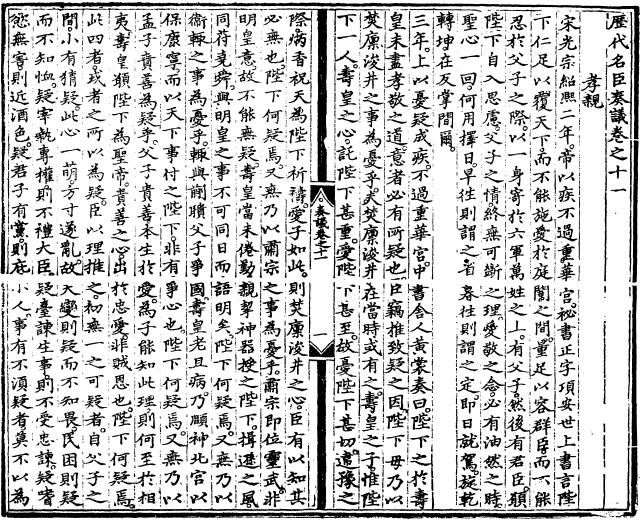 歷代名臣奏議卷之十一
孝親
宋光宗紹熙二年帝以疾不過重華宮祕書正字項安世上書言陛
下仁足以覆天下而不能施愛於庭闈之間量足以容群臣而不能
忍於父子之際以一身寄於六軍萬姓之上有父子然後有君臣願
陛下自入思慮父子之情終無可斷之理愛敬之念必有油然之時
聖心一回何用擇日早往則謂之省暮往則謂之定即日就駕旋乾
轉坤在反掌間爾
三年上以憂疑成疾不過重華宮中書舍人黃裳奏曰陛下之於壽
皇未盡孝敬之道意者必有所疑也臣竊推致疑之因陛下毋乃以
焚廩浚井之事為憂乎夫焚廩浚井在當時或有之壽皇之子惟陛
下一人壽皇之心託陛下甚重愛陛下甚至故憂陛下甚切違豫之
奏議卷之十一
一
際焫香祝天為陛下祈禱愛子如此則焚廩浚井之心臣有以知其
必無也陛下何疑焉又無乃以肅宗之事為憂乎肅宗即位靈武非
明皇意故不能無疑壽皇當未倦勤親挈神器授之陛下揖遜之風
同符堯舜與明皇之事不可同日而語明矣陛下何疑焉又無乃以
衛輒之事為憂乎輒與蒯聵父子爭國壽皇老且病乃頤神北宮以
保康寧而以天下事付之陛下非有爭心也陛下何疑焉又無乃以
孟子責善為疑乎父子責善本生於愛為子能知此理則何至於相
夷壽皇願陛下為聖帝責善之心出於忠愛非賊恩也陛下何疑焉
此四者或者之所以為疑臣以理推之初無一之可疑者自父子之
間小有猜疑此心一萌方寸遂亂故天變則疑而不知畏民困則疑
而不知恤疑宰執專權則不禮大臣疑臺諫生事則不受忠諫疑嗜
慾無害則近酒色疑君子有黨則庇小人事有不須疑者莫不以為